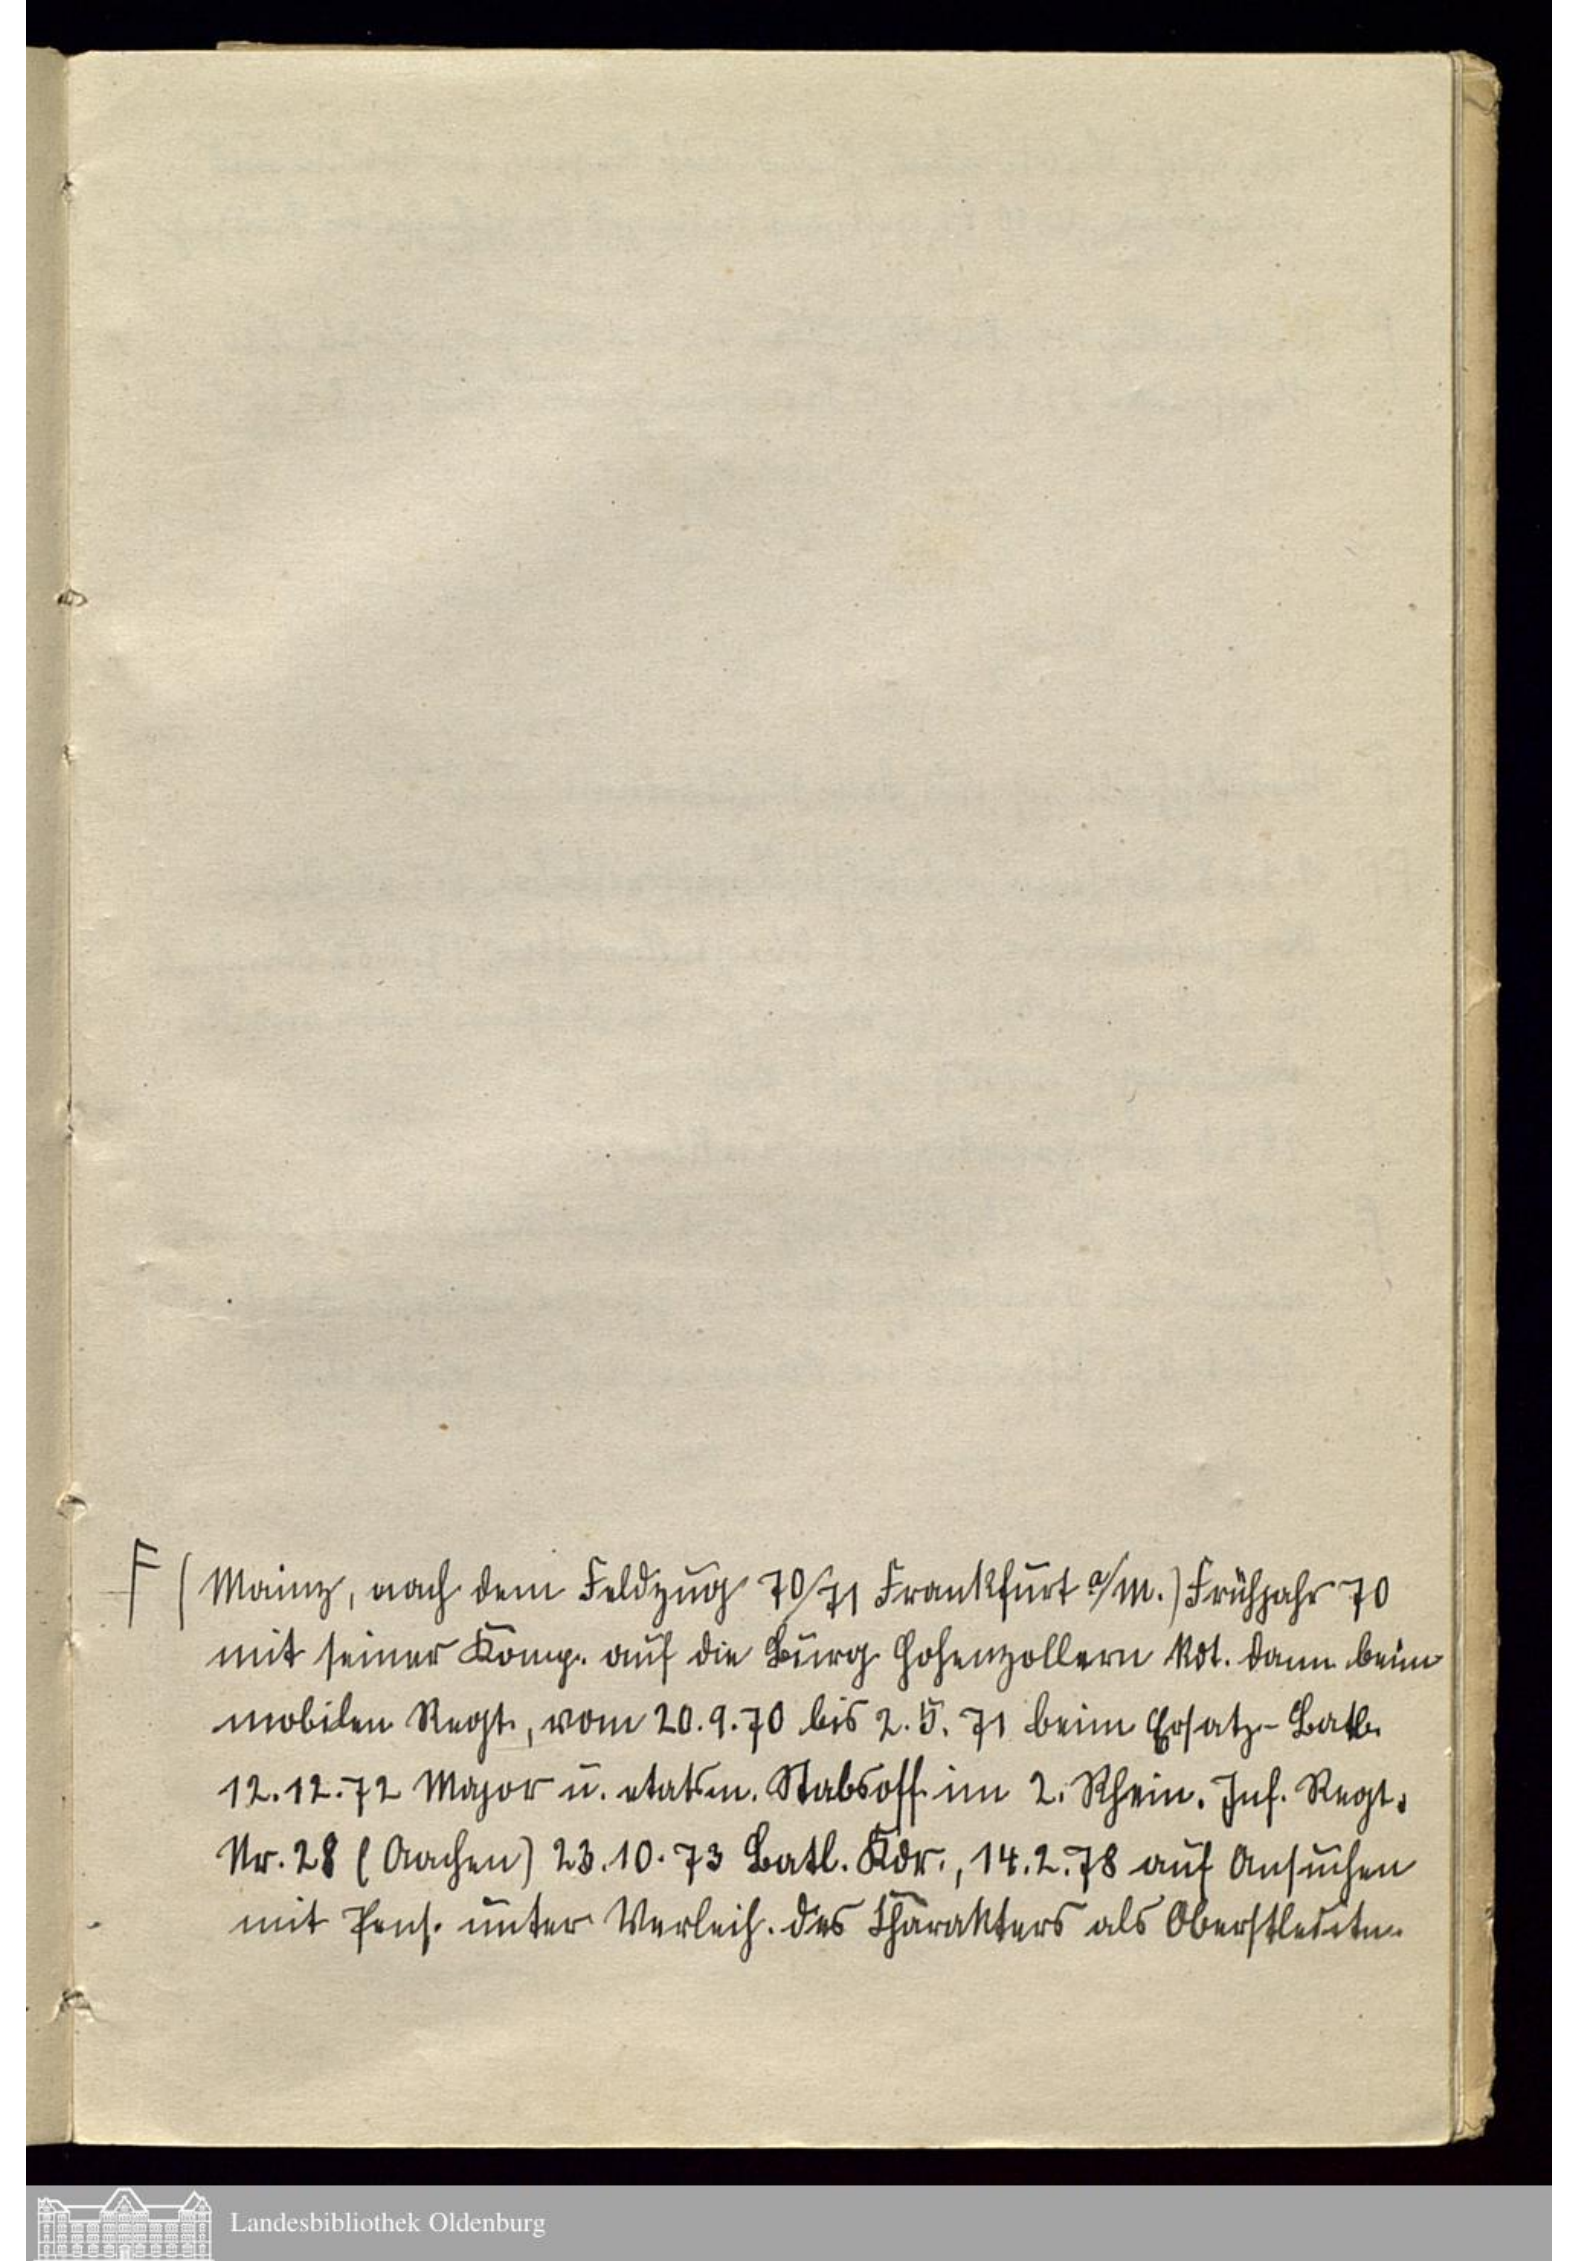 F (Mainz, nach dem Feldzug 70/71 Frankfurt a/M.) Frühjahr 70
mit seiner Komp. auf die Burg Hohenzollern Kdt. dann beim
mobilen Regt., vom 20.9.70 bis 2.5.71 beim Ersatz-Batl.
12.12.72 Major u. etatsm. Stabsoff. im 2. Rhein. Inf. Regt.
Nr. 28 (Aachen) 23.10.73 Batl. Kdr., 14.2.78 auf Ansuchen
mit Pens. unter Verleih. des Charakters als Oberstleutn.
Landesbibliothek Oldenburg